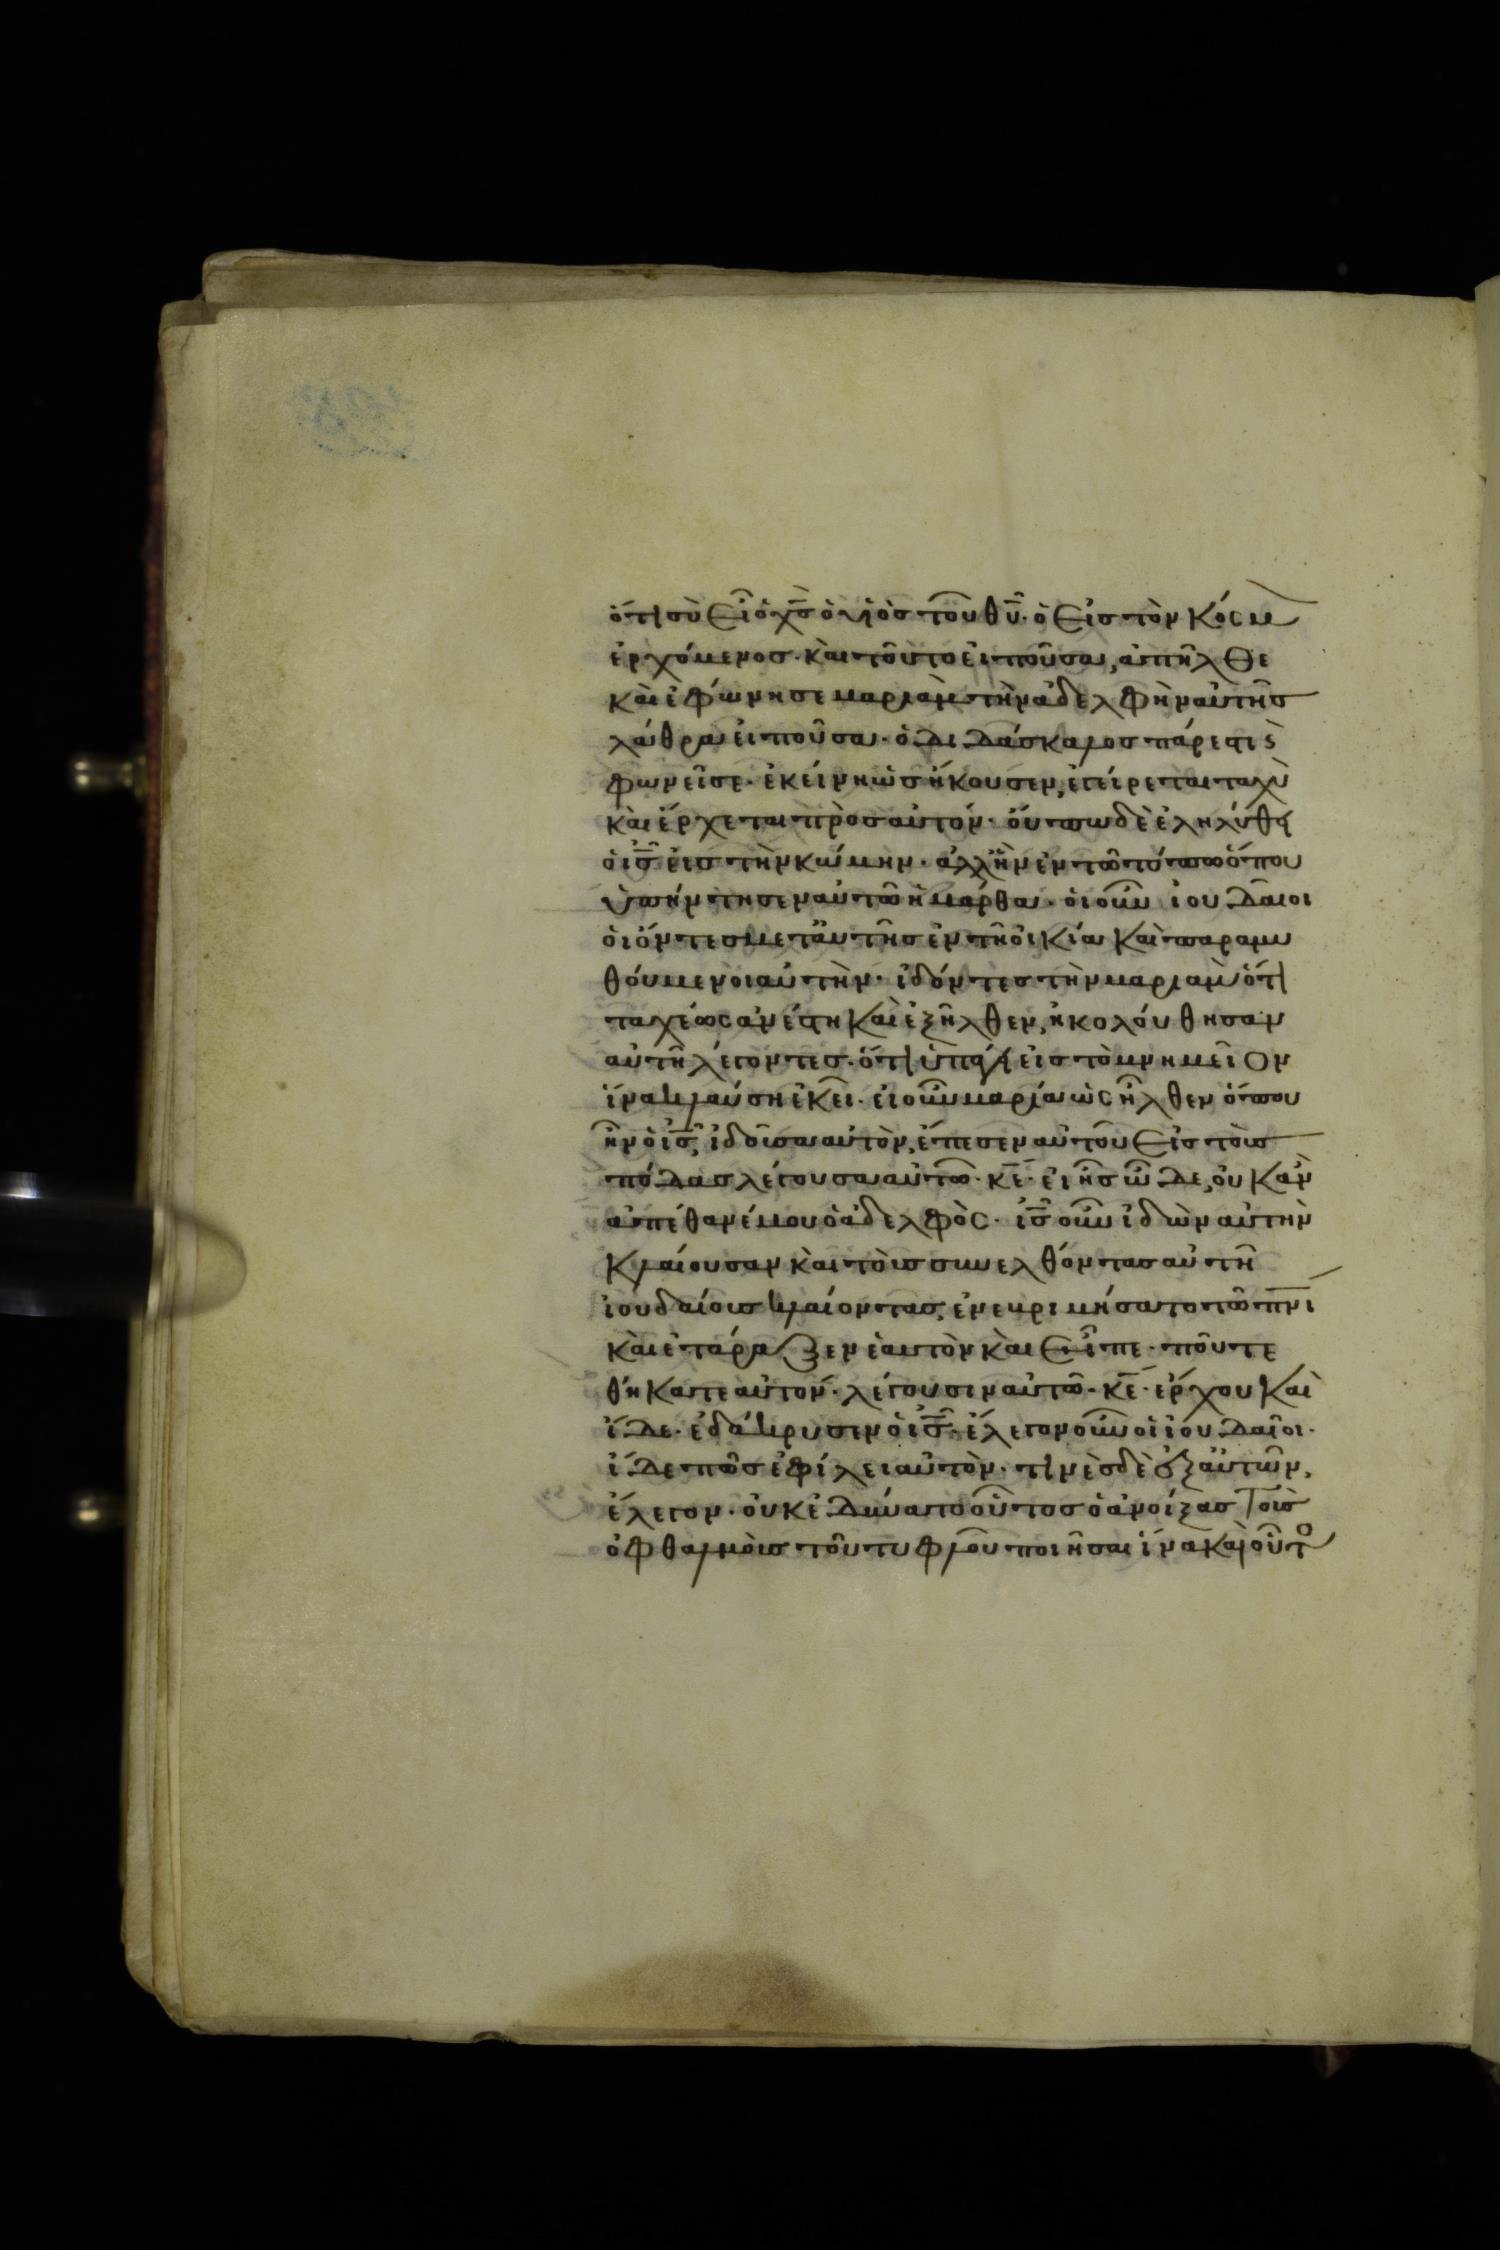 ὅτι σὺ εἶ ὁ χ̅ς̅ ὁ υἱὸσ τοῦ θ̅υ̅· ὁ εἰσ τὸν κόσμ
ἐρχόμενοσ· καὶ τοῦτο εἰποῦσα, ἀπῆλθε
καὶ ἐφώνησε μαριὰμ τὴν ἀδελφὴν αὐτῆσ
λάθρα εἰποῦσα· ὁ διδάσκαλοσ πάρεστι ϛ
φωνεῖ σε· ἐκείνη ὡσ ἤκουσεν, ἐγείρεται ταχὺ
καὶ ἔρχεται πρὸσ αὐτόν· οὔπω δὲ ἐληλύθει
ὁ ι̅ς̅ εἰσ τὴν κώμην· ἀλλ' ἦν ἐν τῶ τόπω ὅπου
ὑπήντησεν αὐτῶ ἡ μάρθα· οἱ οὖν ἰουδαῖοι
οἱ ὄντεσ μετ' αὐτῆσ ἐν τῆ οἰκία καὶ παραμυ
θούμενοι αὐτὴν· ἰδόντεσ τὴν μαριὰμ ὅτι
ταχέωσ ἀνέστη καὶ ἐξῆλθεν, ἠκολούθησαν
αὐτῆ λέγοντεσ· ὅτι ὑπάγει εἰσ τὸ μνημεῖον
ἵνα κλαύση ἐκεῖ· εἰ οὖν μαρία ὡσ ἦλθεν ὅπου
ἦν ὁ ι̅ς̅, ἰδοῦσα αὐτὸν, ἔπεσεν αὐτοῦ εἰσ τοὺσ
πόδασ λέγουσα αὐτῶ· κ̅ε̅· εἰ ἦσ ὧδε, οὐκ ἂν
ἀπέθανέ μου ὁ ἀδελφὸσ· ι̅ς̅ οὖν ἰδὼν αὐτὴν
κλαίουσαν καὶ τοὺσ συνελθόντασ αὐτῆ
ἰουδαίουσ κλαίοντασ, ἐνεβριμήσατο τῶ π̅ν̅ι̅
καὶ ἐτάραξεν ἑαυτὸν καὶ εἶπε· ποῦ τε
θήκατε αὐτόν· λέγουσιν αὐτῶ· κ̅ε̅· ἔρχου καὶ
ἴδε· ἐδάκρυσεν ὁ ι̅ς̅· ἔλεγον οὖν οἱ ἰουδαῖοι·
ἴδε πῶσ ἐφίλει αὐτὸν· τινὲσ δὲ ἐξ αὐτῶν,
ἔλεγον· οὐκ ἐδύνατο οὗτοσ ὁ ἀνοίξασ τοὺσ
ὀφθαλμοὺσ τοῦ τυφλοῦ ποιῆσαι ἵνα καὶ οὗτο